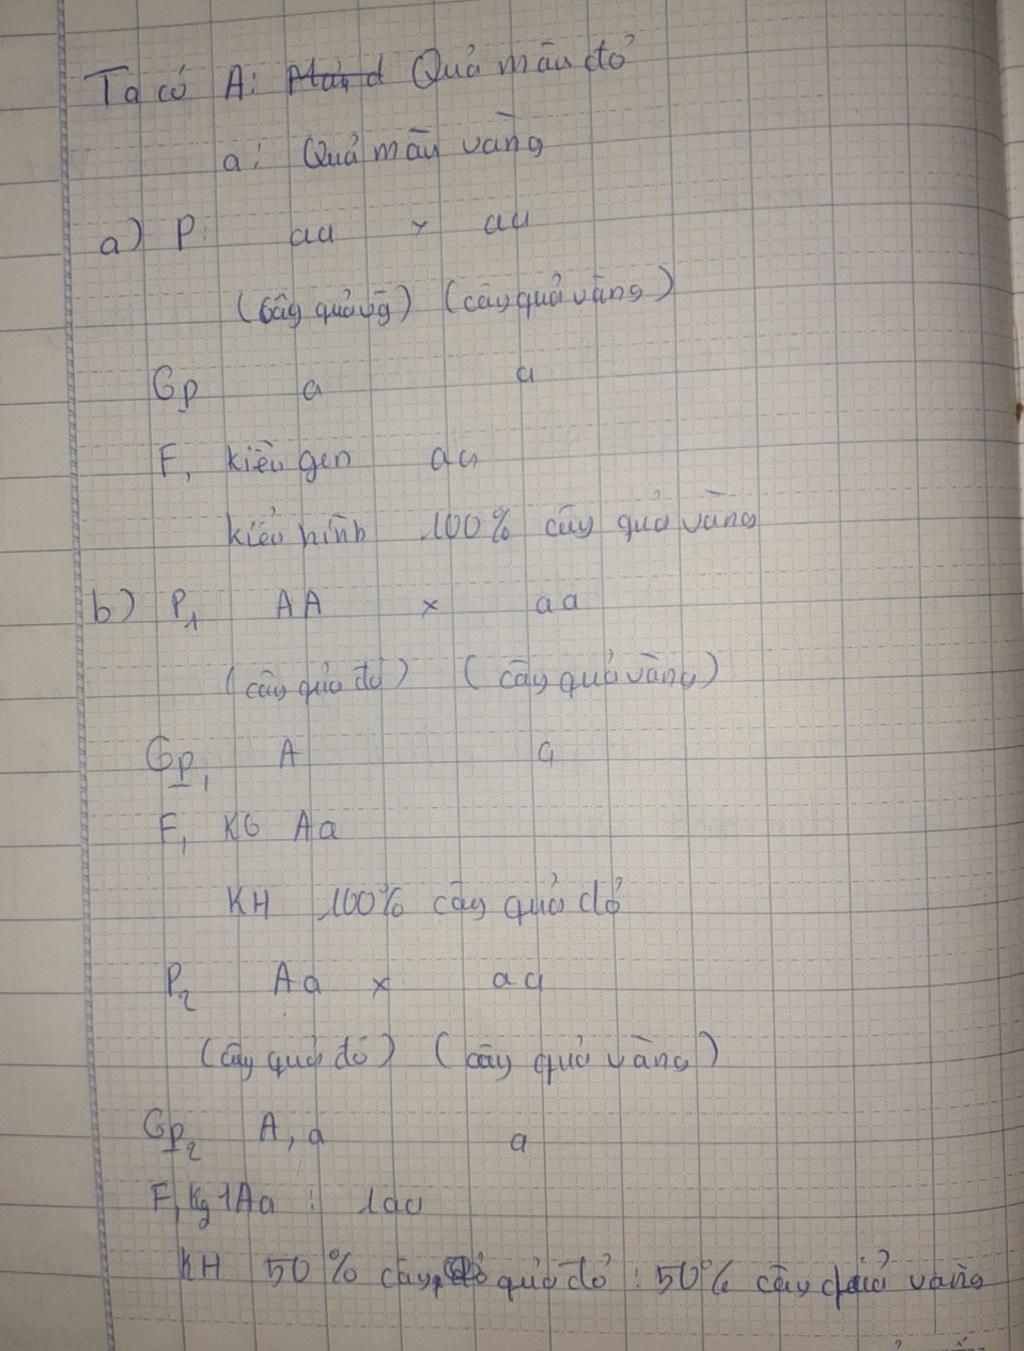 Ta có A: Quả màu đỏ
a: Quả màu vàng
a) P: aa x aa
(Cây quả vg) (cây quả vàng)
Gp a a
F1 kiểu gen aa
kiểu hình 100% cây quả vàng
b) P1 AA x aa
(cây quả đỏ) (cây quả vàng)
Gp1 A a
F1 KG Aa
KH 100% cây quả đỏ
P2 Aa x aa
(cây quả đỏ) (cây quả vàng)
Gp2 A, a a
F1 Kg 1Aa : 1aa
KH 50% cây quả đỏ : 50% cây quả vàng